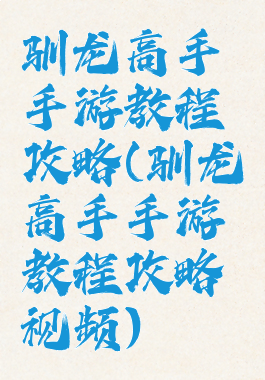 驯龙高手
手游教程
攻略(驯龙
高手手游
教程攻略
视频)